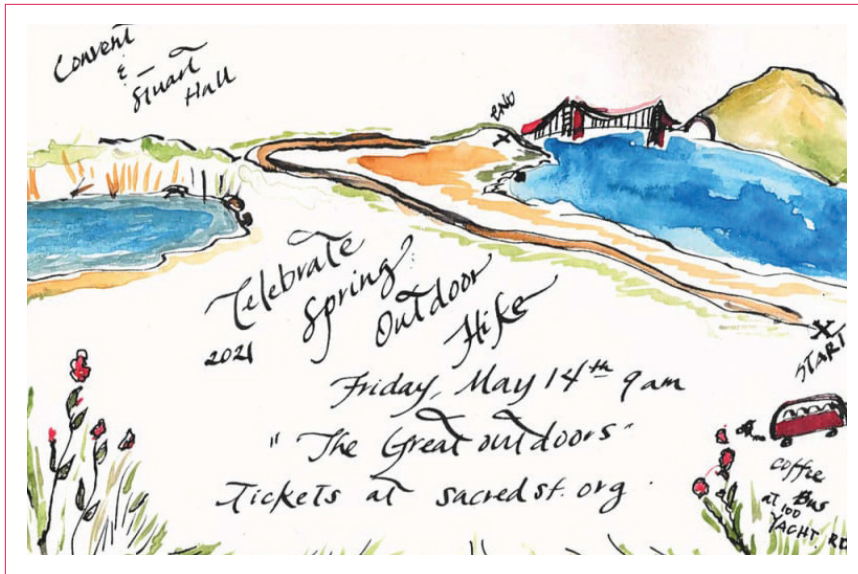 Convent
&
Stuart
Hall
END
Celebrate
Spring
Outdoor
Hike
2021
START
Friday, May 14th 9am
"The Great outdoors"
Tickets at sacredsf.org.
Coffee
Bus
at 100
YACHT RD